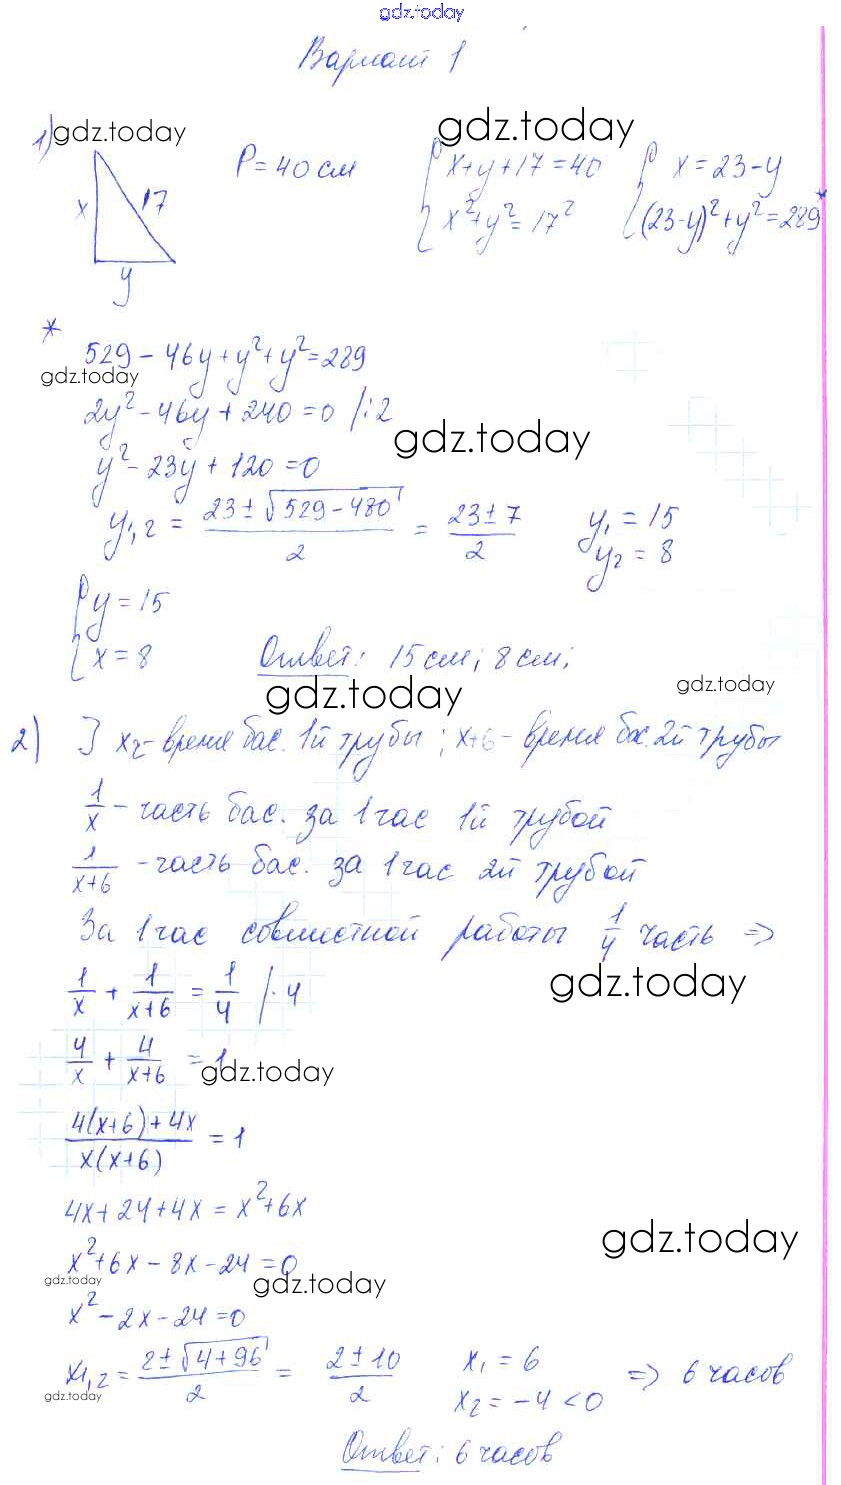 gdz.today
Вариант 1
1) gdz.today
gdz.today
P = 40 см
x + y + 17 = 40
x = 23 - y
x 17
x² + y² = 17²
(23-y)² + y² = 289 *
y
*
529 - 46y + y² + y² = 289
gdz.today
2y² - 46y + 240 = 0 /:2
gdz.today
y² - 23y + 120 = 0
y₁,₂ = (23 ± √(529 - 480))/2 = (23 ± 7)/2
y₁ = 15
y₂ = 8
y = 15
x = 8
Ответ: 15 см; 8 см;
gdz.today
gdz.today
2) x - время бас. 1й трубы; x+6 - время бас. 2й трубы
1/x - часть бас. за 1 час 1й трубой
1/(x+6) - часть бас. за 1 час 2й трубой
За 1 час совместной работы 1/4 часть =>
1/x + 1/(x+6) = 1/4 /·4
gdz.today
4/x + 4/(x+6) = 1
gdz.today
(4(x+6) + 4x)/(x(x+6)) = 1
4x + 24 + 4x = x² + 6x
gdz.today
x² + 6x - 8x - 24 = 0
gdz.today
gdz.today
x² - 2x - 24 = 0
x₁,₂ = (2 ± √(4 + 96))/2 = (2 ± 10)/2
x₁ = 6
x₂ = -4 < 0
=> 6 часов
gdz.today
Ответ: 6 часов